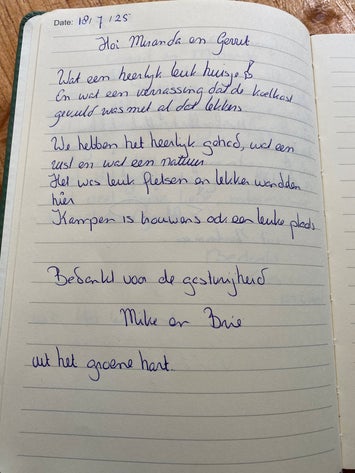 Date: 18 / 7 / 25
Hoi Miranda en Gerrit
Wat een heerlijk leuk huisje
En wat een verrassing dat de koelkast
gevuld was met al dat lekkers
We hebben het heerlijk gehad, wat een
rust en wat een natuur
Het was leuk fietsen en lekker wandelen
hier
Kampen is trouwens ook een leuke plaats
Bedankt voor de gastvrijheid
Mike en Brie
uit het groene hart.